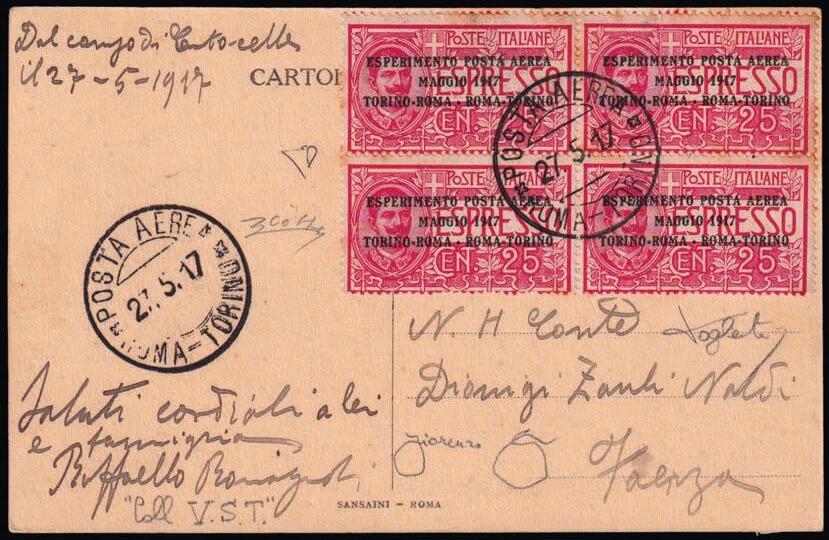 Dal campo di Centocelle
il 27-5-1917
CARTOL
POSTE ITALIANE
ESPERIMENTO POSTA AEREA
MAGGIO 1917
TORINO-ROMA · ROMA-TORINO
ESPRESSO
CEN. 25
POSTE ITALIANE
ESPERIMENTO POSTA AEREA
MAGGIO 1917
TORINO-ROMA · ROMA-TORINO
ESPRESSO
CEN. 25
POSTE ITALIANE
ESPERIMENTO POSTA AEREA
MAGGIO 1917
TORINO-ROMA · ROMA-TORINO
ESPRESSO
CEN. 25
POSTE ITALIANE
ESPERIMENTO POSTA AEREA
MAGGIO 1917
TORINO-ROMA · ROMA-TORINO
ESPRESSO
CEN. 25
POSTA AEREA
27.5.17
ROMA-TORINO
POSTA AEREA
27.5.17
ROMA-TORINO
N. H Conte
Dionigi Zauli Naldi
Faenza
Saluti cordiali a lei
e famiglia
Raffaello Romagnoli
Fiorenzo
"Coll V.S.T."
SANSAINI - ROMA